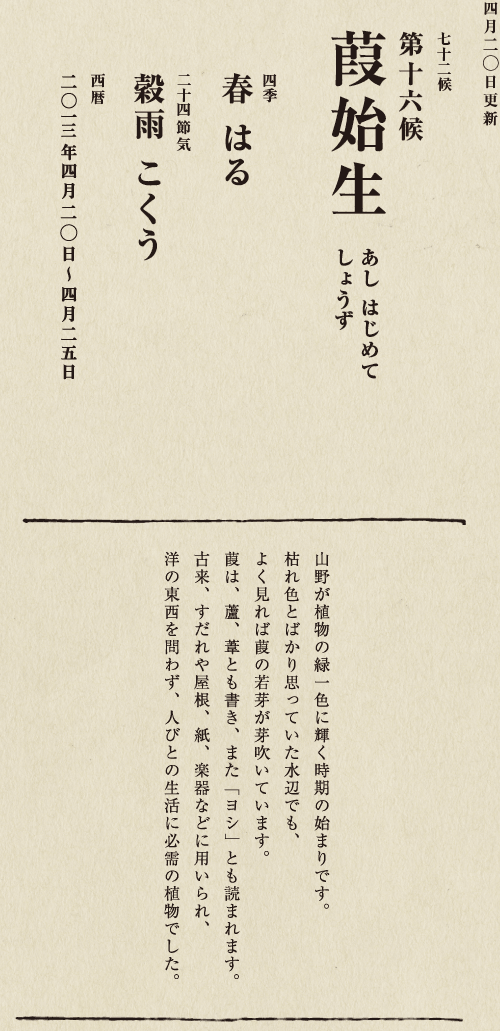 四月二〇日更新
七十二候
第十六候
葭始生
あし はじめて
しょうず
四季
春 はる
二十四節気
穀雨 こくう
西暦
二〇一三年四月二〇日～四月二五日
山野が植物の緑一色に輝く時期の始まりです。
枯れ色とばかり思っていた水辺でも、
よく見れば葭の若芽が芽吹いています。
葭は、蘆、葦とも書き、また「ヨシ」とも読まれます。
古来、すだれや屋根、紙、楽器などに用いられ、
洋の東西を問わず、人びとの生活に必需の植物でした。